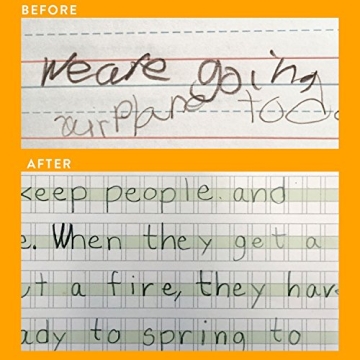 BEFORE
We are going
airplane too
AFTER
keep people and
e. When they get a
ut a fire, they have
ady to spring to